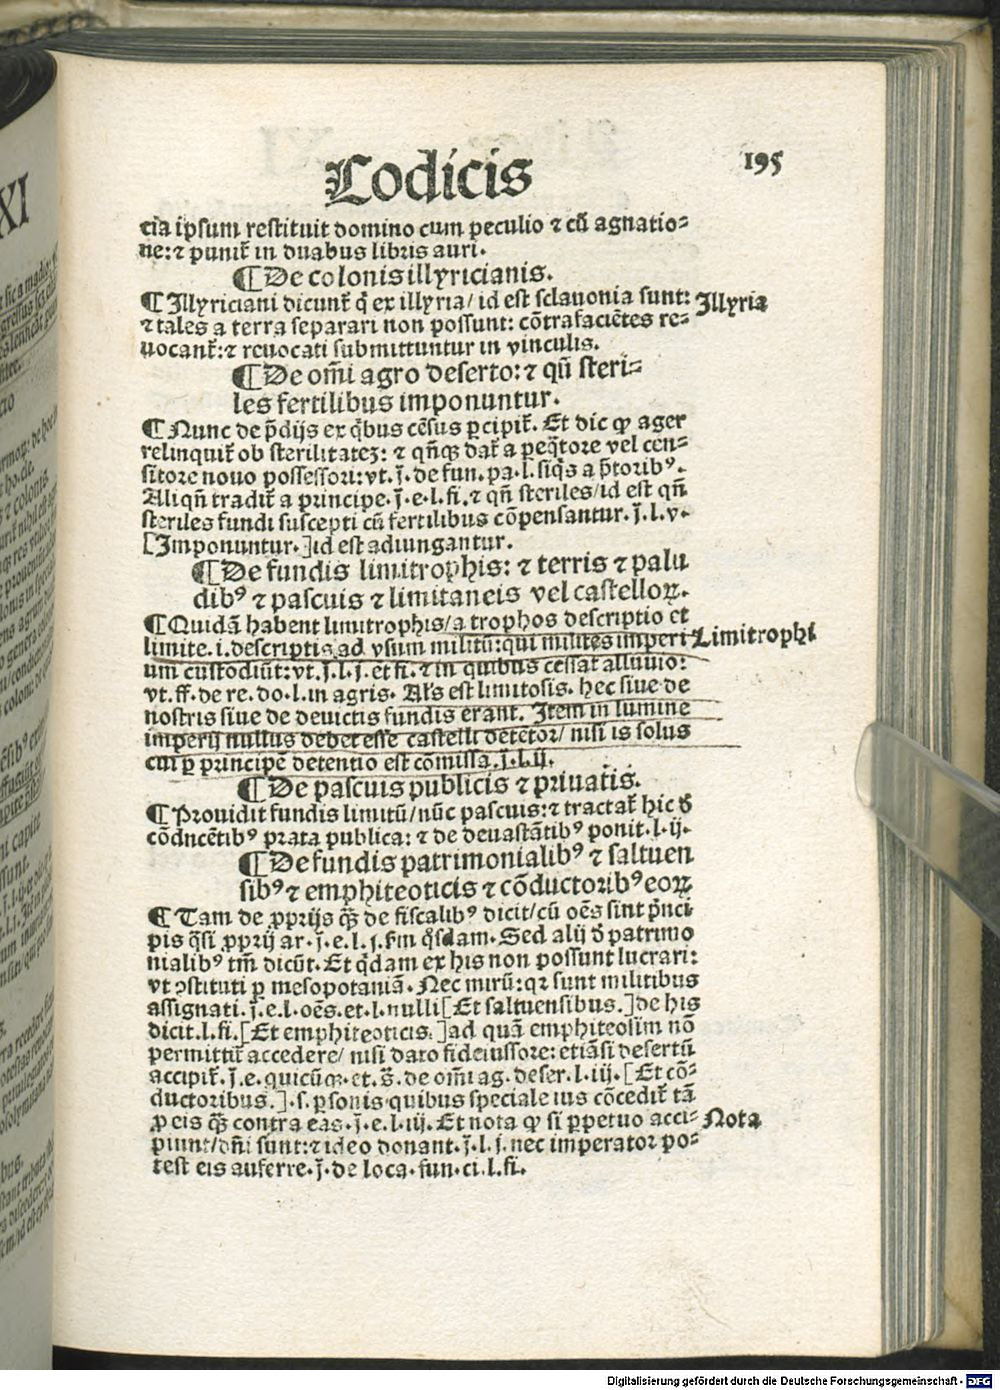 Codicis
195
cia ipsum restituit domino cum peculio ⁊ cū agnatio⸗
ne:⁊ punit᷑ in duabus libris auri.
¶ De colonis illyricianis.
¶ Illyriciani dicunt᷑ q̄ ex illyria/ id est sclauonia sunt:
Illyria
⁊ tales a terra separari non possunt: cōtrafaciētes re⸗
uocant᷑:⁊ reuocati submittuntur in vinculis.
¶ De om̄i agro deserto:⁊ qn̄ steri⸗
les fertilibus imponuntur.
¶ Nunc de p̄dijs ex q̇bus cēsus ꝑcipit᷑. Et dic ꝙ ager
relinquit᷑ ob sterilitateꝫ: ⁊ qn̄qꝫ dat᷑ a peq̄tore vel cen⸗
sitore nouo possessori:vt.j̄.de fun.pa.l.siq̇s a p̄toribꝰ.
Aliqn̄ tradit᷑ a principe.j̄.e.l.fi.⁊ qn̄ steriles/id est qn̄
steriles fundi suscepti cū fertilibus cōpensantur.j̄.l.v.
[Imponuntur.]id est adiungantur.
¶ De fundis limitrophis: ⁊ terris ⁊ palu
dibꝰ ⁊ pascuis ⁊ limitaneis vel castelloꝝ.
¶ Quidā habent limitrophis/a trophos descriptio et
limite.i.descriptis ad vsum militū:qui milites imperi
Limitrophi
um custodiūt:vt.j̄.l.j.et fi.⁊ in quibus cessat alluuio:
vt.ff.de re.do.l.in agris. Al's est limitosis. hec siue de
nostris siue de deuictis fundis erant. Item in lumine
imperij nullus debet esse castelli detētor/ nisi is solus
cui ꝑ principē detentio est cōmissa.j̄.l.ij.
¶ De pascuis publicis ⁊ priuatis.
¶ Prouidit fundis limitū/nūc pascuis:⁊ tractat᷑ hic ď
cōducētibꝰ prata publica: ⁊ de deuastātibꝰ ponit.l.ij.
¶ De fundis patrimonialibꝰ ⁊ saltuen
sibꝰ⁊ emphiteoticis ⁊ cōductoribꝰ eoꝝ
¶ Tam de ꝓprijs qꝫ̄ de fiscalibꝰ dicit/cū oēs sint p̄nci
pis q̄si ꝓprij ar.j̄.e.l.j.ẜm q̇sdam. Sed alij ď patrimo
nialibꝰ tm̄ dicūt. Et q̇dam ex his non possunt lucrari:
vt ꝯstituti ꝑ mesopotaniā. Nec mirū:qꝛ sunt militibus
assignati.j̄.e.l.oēs.et.l.nulli[Et saltuensibus.]de his
dicit.l.fi.[Et emphiteoticis.]ad quā emphiteosim nō
permittit᷑ accedere/ nisi dato fideiussore: etiāsi desertū
accipit᷑.j̄.e.quicūqꝫ.et.s̄.de om̄i ag.deser.l.iij.[Et cō⸗
ductoribus.].s.ꝑsonis quibus speciale ius cōcedit᷑ tā
ꝓ eis qꝫ̄ contra eas.j̄.e.l.iij. Et nota ꝙ si ꝑpetuo acci⸗
Nota
piunt/dn̄i sunt:⁊ ideo donant.j̄.l.j.nec imperator po⸗
test eis auferre.j̄.de loca.fun.ci.l.fi.
Digitalisierung gefördert durch die Deutsche Forschungsgemeinschaft - DFG